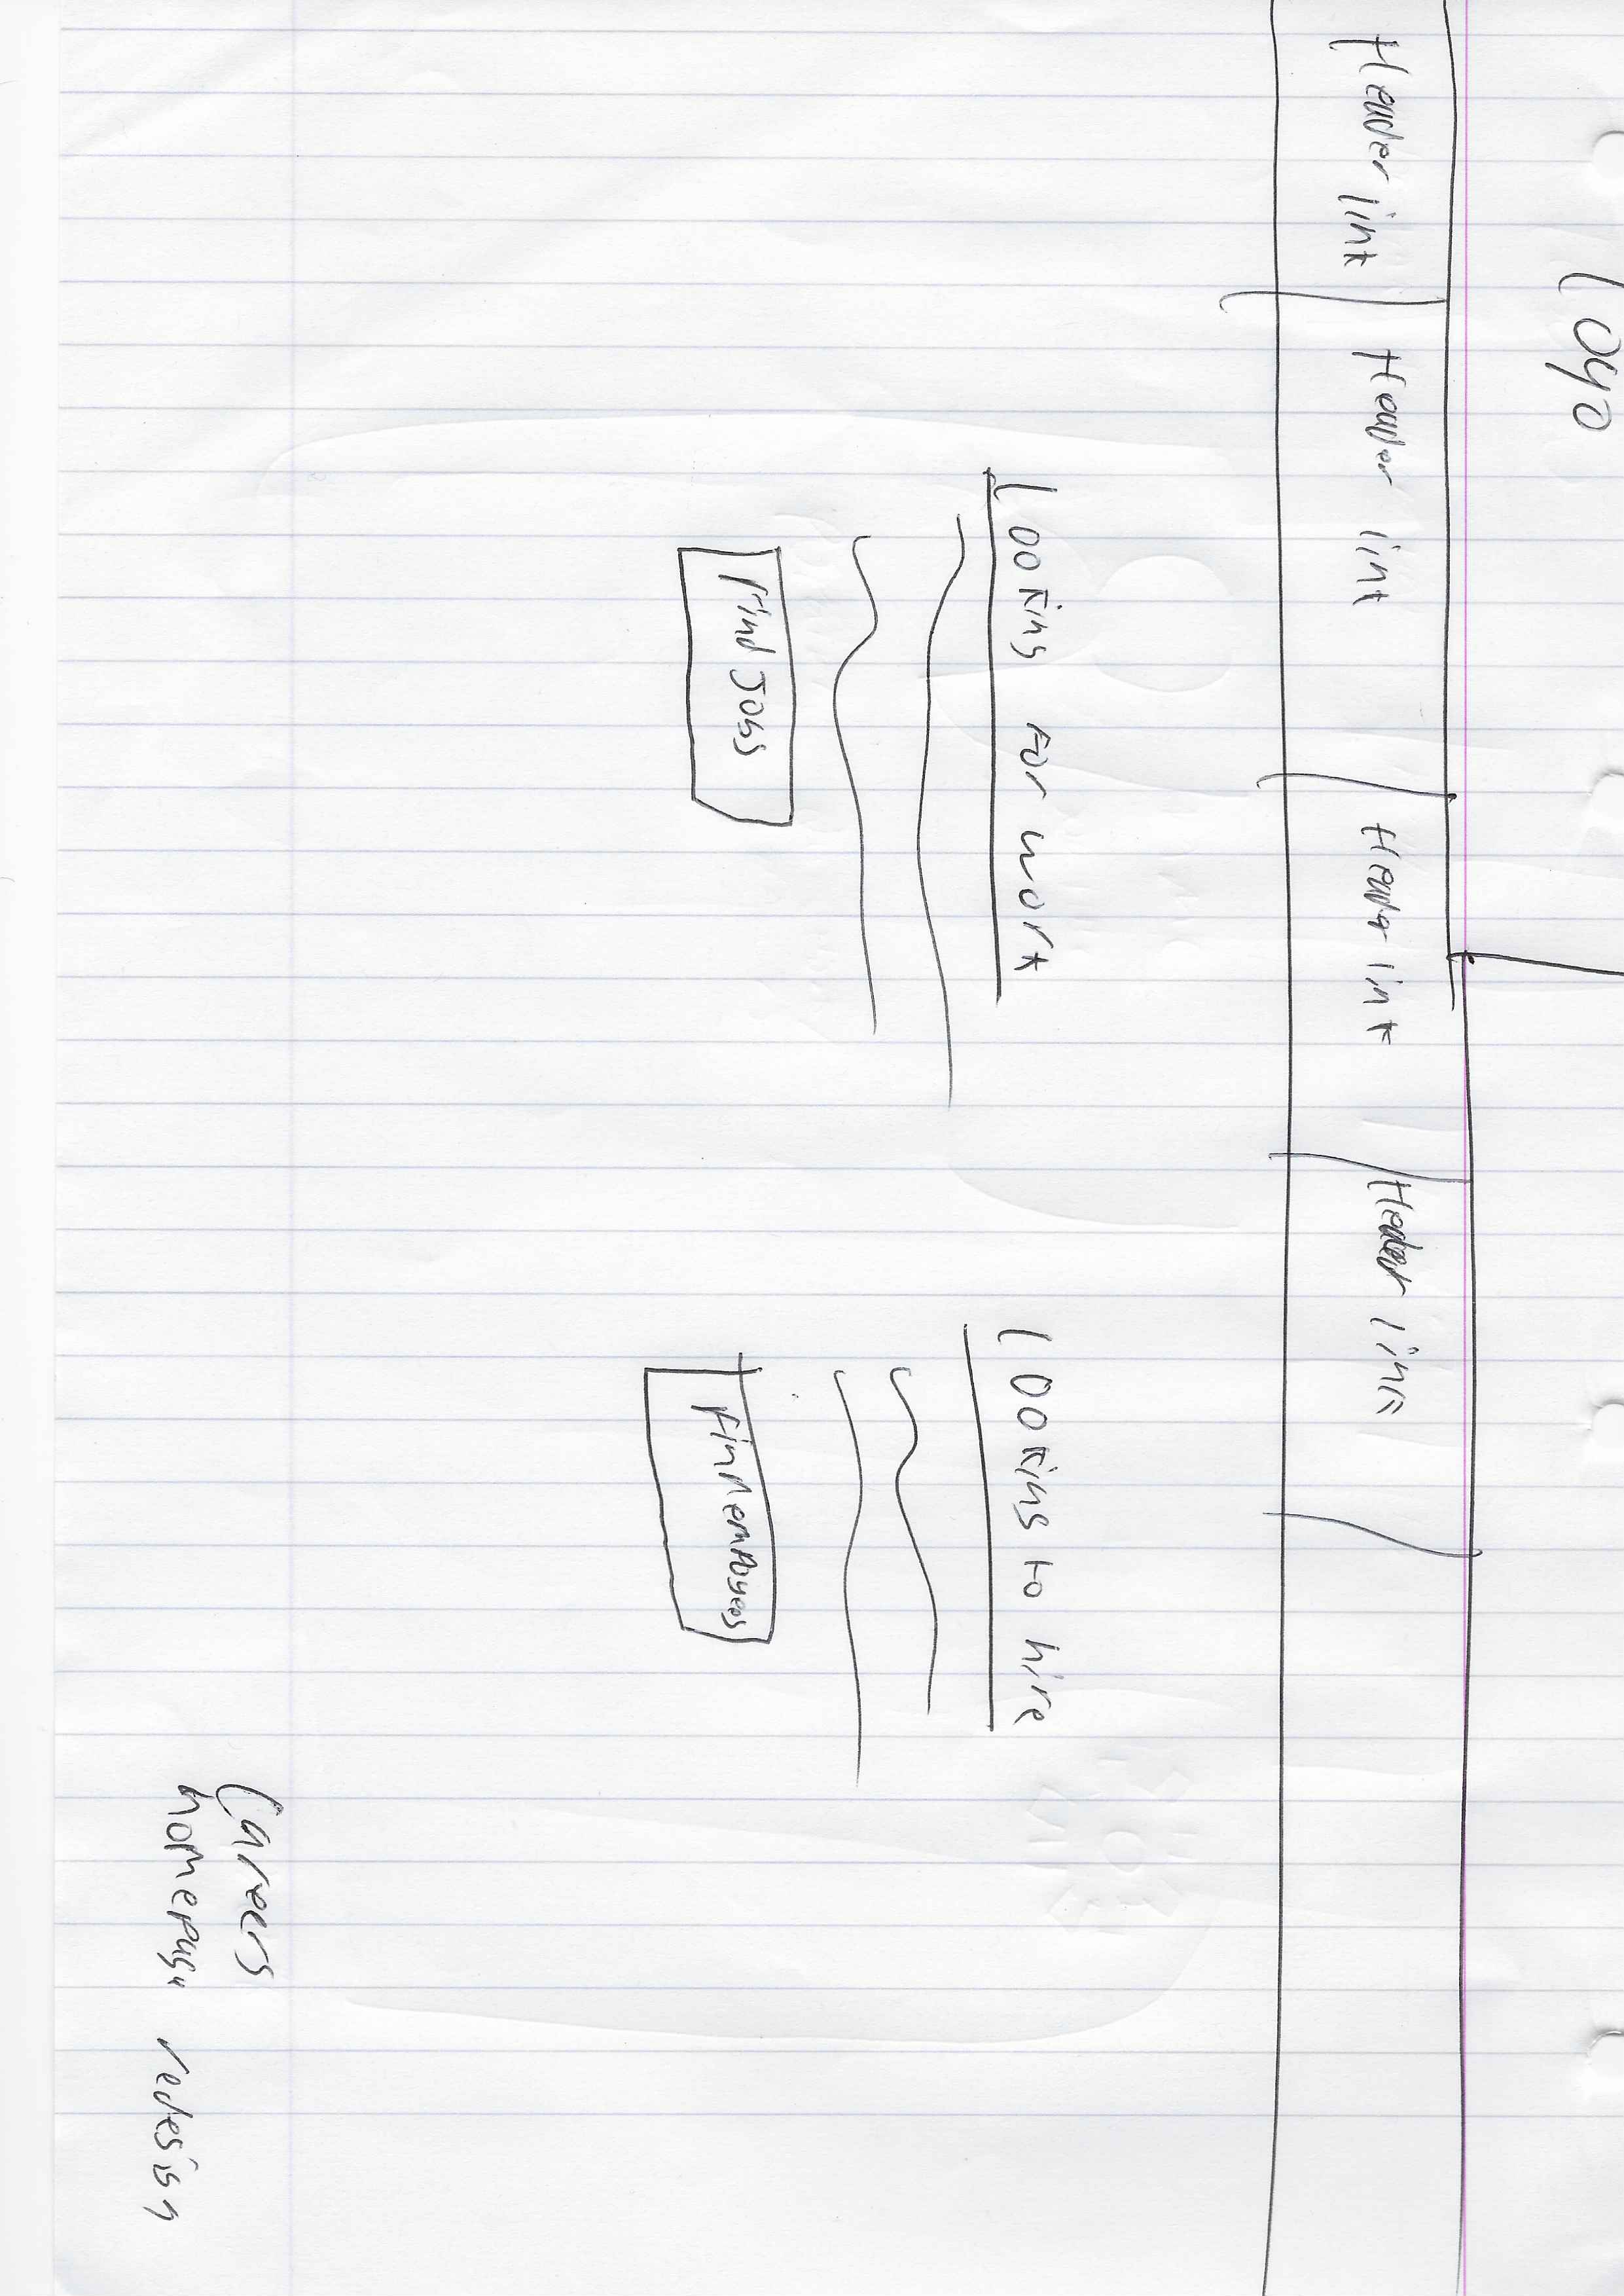 Logo
Header link Header link Header link Header link
Looking for work Looking to hire
Find Jobs Find empoyees
Careers
homepage redesign